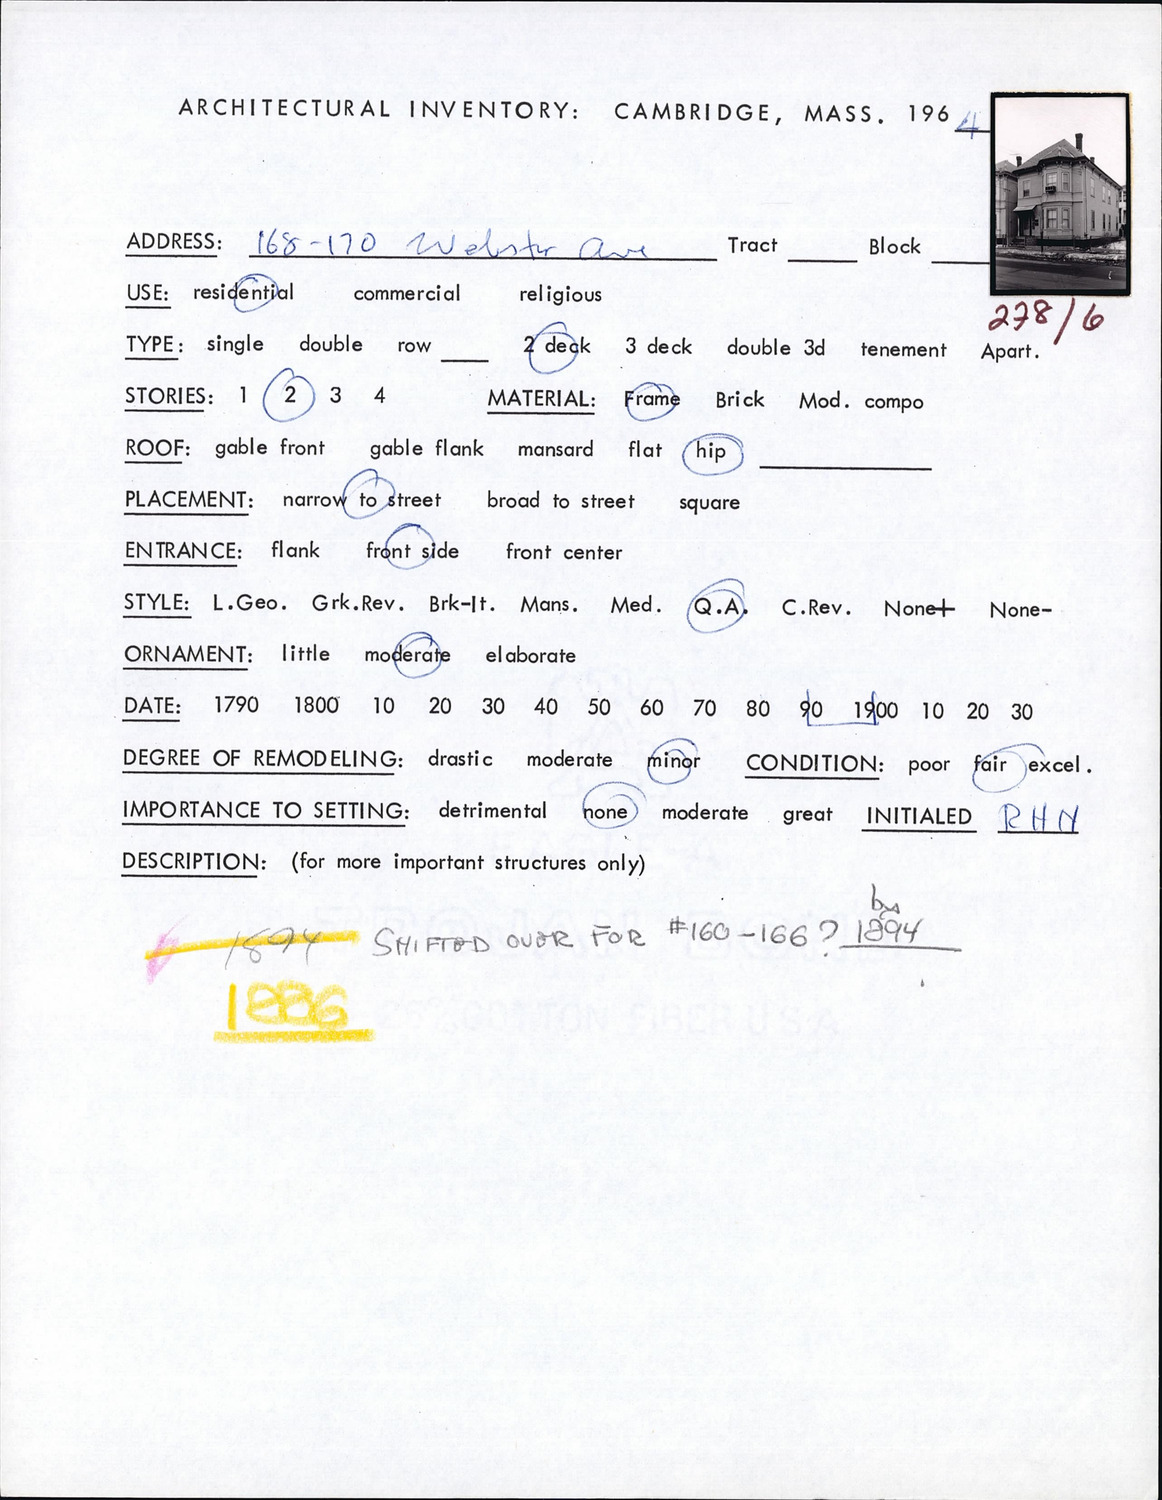 ARCHITECTURAL INVENTORY: CAMBRIDGE, MASS. 1964
ADDRESS: 168-170 Webster Ave Tract ____ Block ____
278/6
USE: residential commercial religious
TYPE: single double row ____ 2 deck 3 deck double 3d tenement Apart.
STORIES: 1 2 3 4 MATERIAL: Frame Brick Mod. compo
ROOF: gable front gable flank mansard flat hip ____
PLACEMENT: narrow to street broad to street square
ENTRANCE: flank front side front center
STYLE: L.Geo. Grk.Rev. Brk-It. Mans. Med. Q.A. C.Rev. None+ None-
ORNAMENT: little moderate elaborate
DATE: 1790 1800 10 20 30 40 50 60 70 80 90 1900 10 20 30
DEGREE OF REMODELING: drastic moderate minor CONDITION: poor fair excel.
IMPORTANCE TO SETTING: detrimental none moderate great INITIALED RHN
DESCRIPTION: (for more important structures only)
by
1894 SHIFTED OVER FOR #160-166? 1894
1886